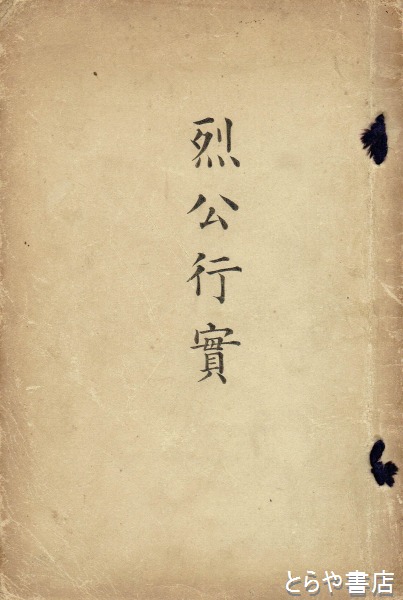 烈公行實
とらや書店